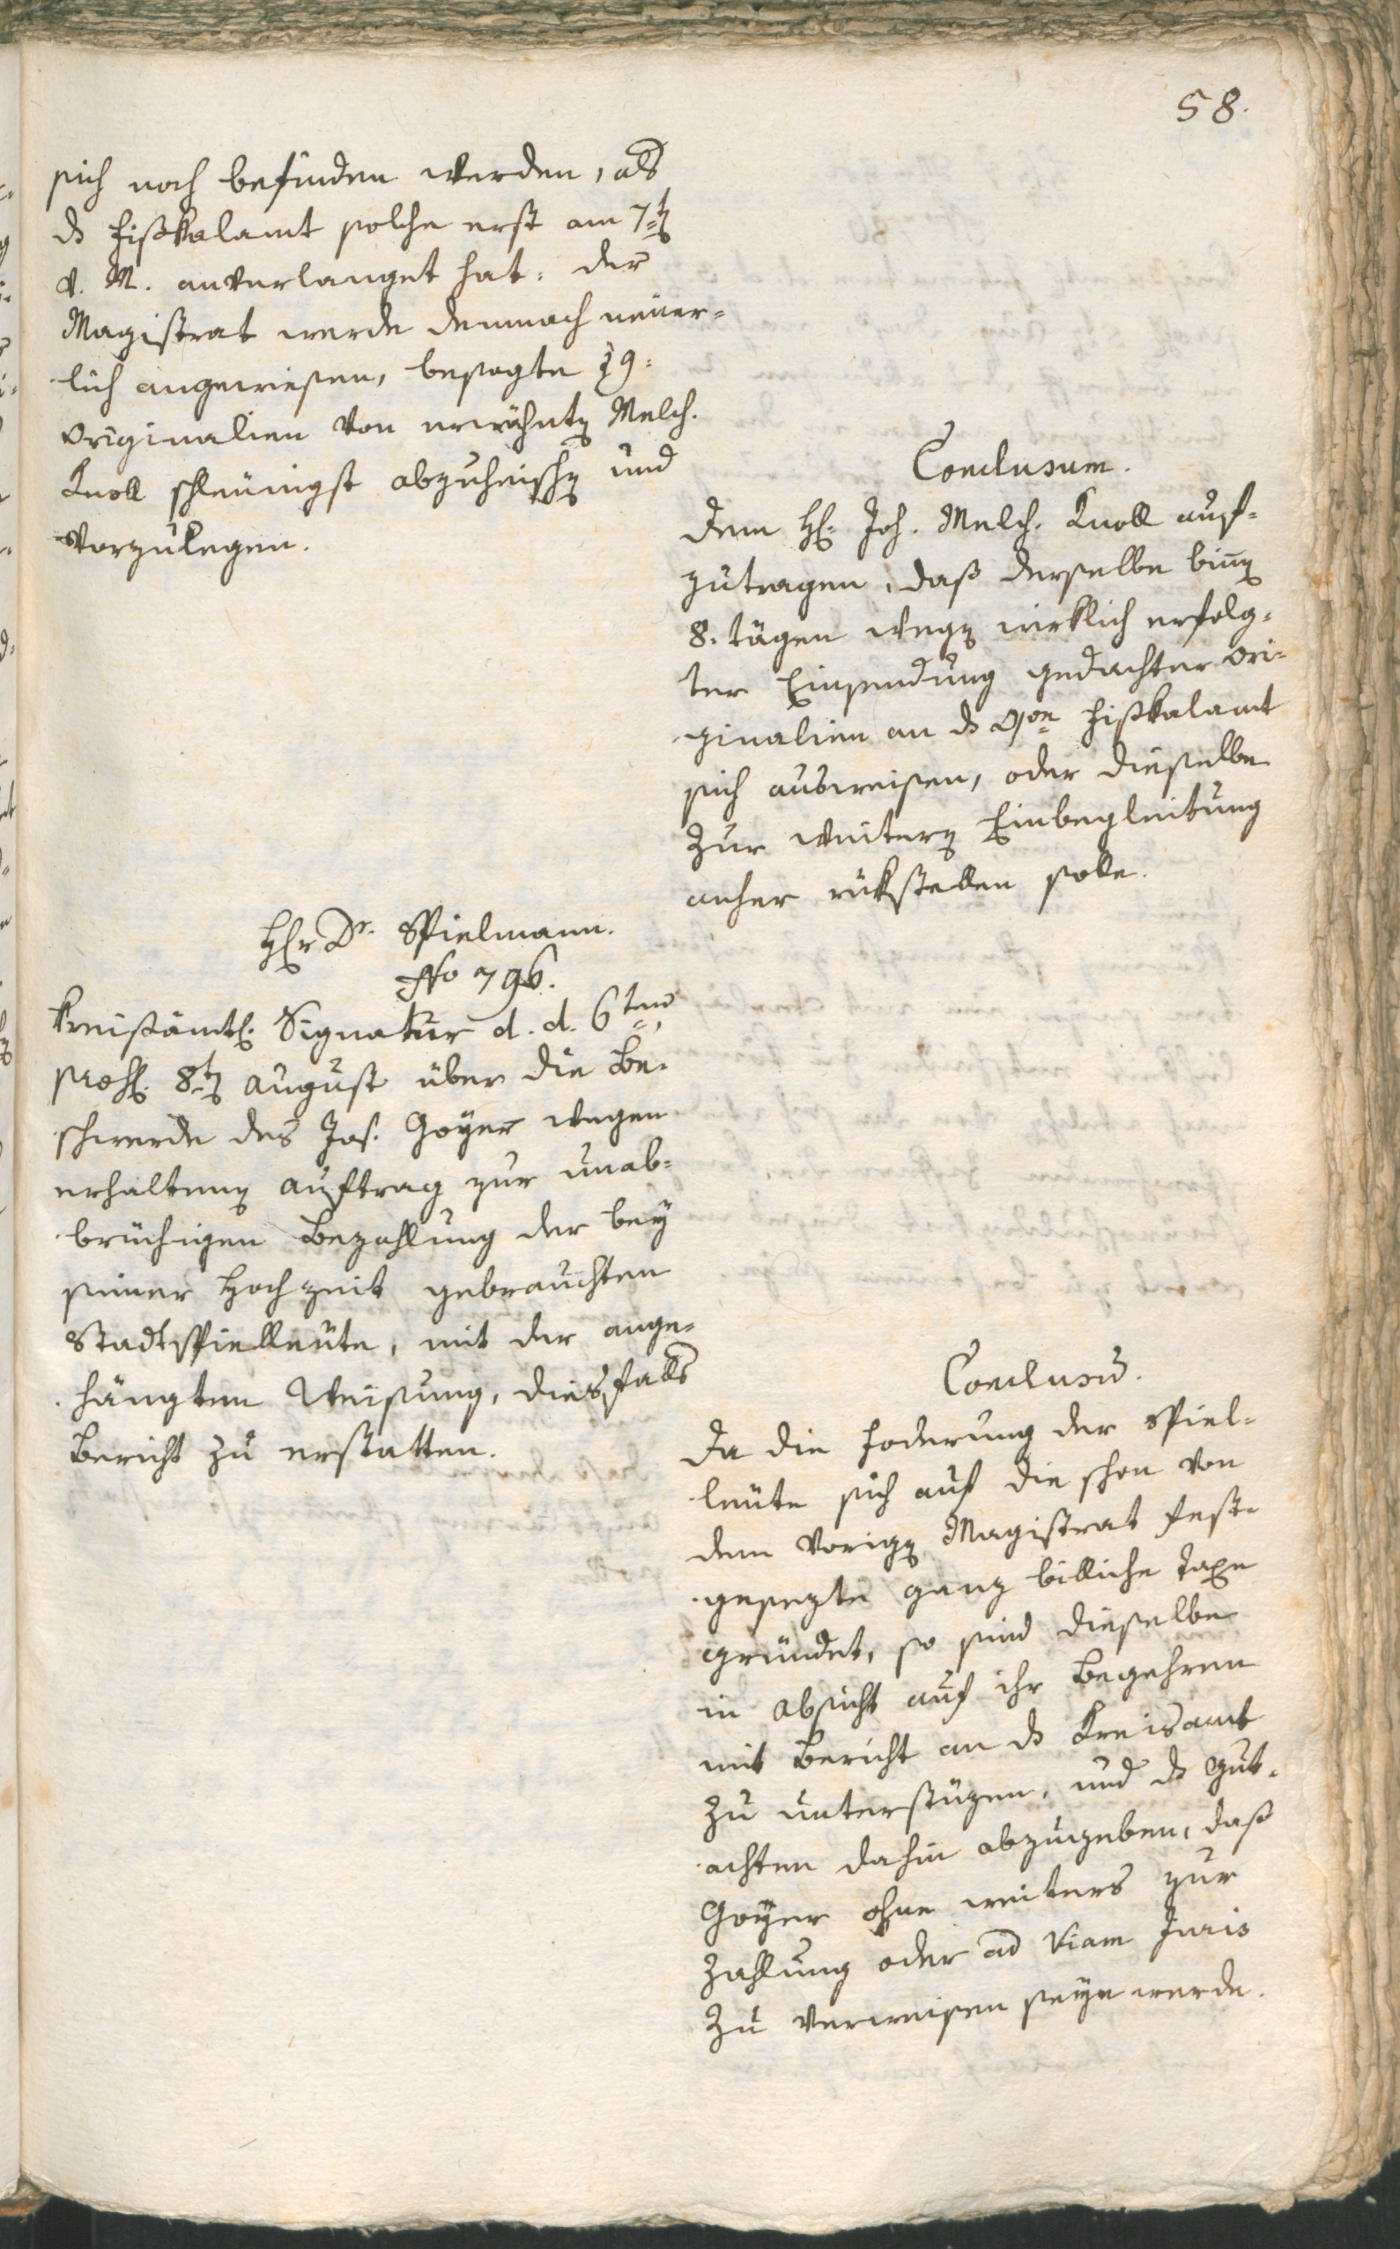 58.
sich noch befinden werden, als
ds Fißkalamt solche erst am 7t
v. M. anverlanget hat. der
Magistrat werde demnach neuer=
lich angewiesen, besagte 19:
Originalien von erwähnten Melch.
Knoll schleünigst abzuheischen und
vorzulegen.
Conclusum.
Dem H: Joh. Melch. Knoll auf=
zutragen, daß derselbe binen
8. tägen wegen wirklich erfolg=
ter Einsendung gedachter Ori=
ginalien an ds Fißkalamt
sich ausweisen, oder dieselbe
zur weitern Einbegleitung
anher rükstellen solle.
Hr Dr. Spielmann.
No 796.
Kreißämtl: Signatur d. d. 6ten,
8t August über die Be=
schwerde des Jos. Goÿer wegen
erhaltenen Auftrag zur unab=
brüchigen Bezahlung der beÿ
seiner Hochzeit gebrauchten
Stadtspielleüte, mit der ange=
hängten Weisung, diesfalls
Bericht zu erstatten.
Conclusum.
Da die Foderung der Spiel=
leüte sich auf die schon von
dem vorigen Magistrat fest=
gesezte ganz billiche Taxe
gründet, so sind dieselbe
in Absicht auf ihr Begehren
mit Bericht an ds Kreisamt
zu unterstüzen, und ds Gut=
achten dahin abzugeben, daß
Goÿer ohne weiters zur
Zahlung oder ad viam Juris
zu verweisen seÿn werde.